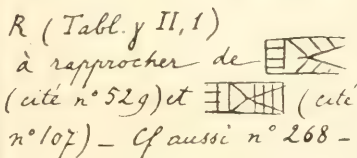 R (Tabl. γ II, 1)
à rapprocher de
(cité n° 529) et (cité
n° 107) _ Cf aussi n° 268 _